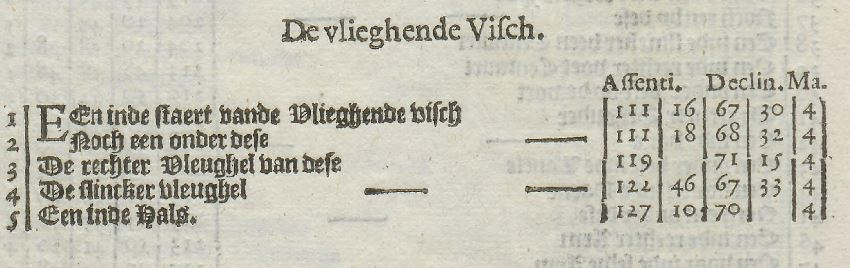 De vlieghende Viſch.
Aſſenti. Declin. Ma.
1 EEn inde ſtaert vande Vlieghende viſch 111 16 67 30 4
2 Noch een onder deſe 111 18 68 32 4
3 De rechter Vleughel van deſe 119 71 15 4
4 De ſlincker vleughel 122 46 67 33 4
5 Een inde Hals. 127 10 70 4